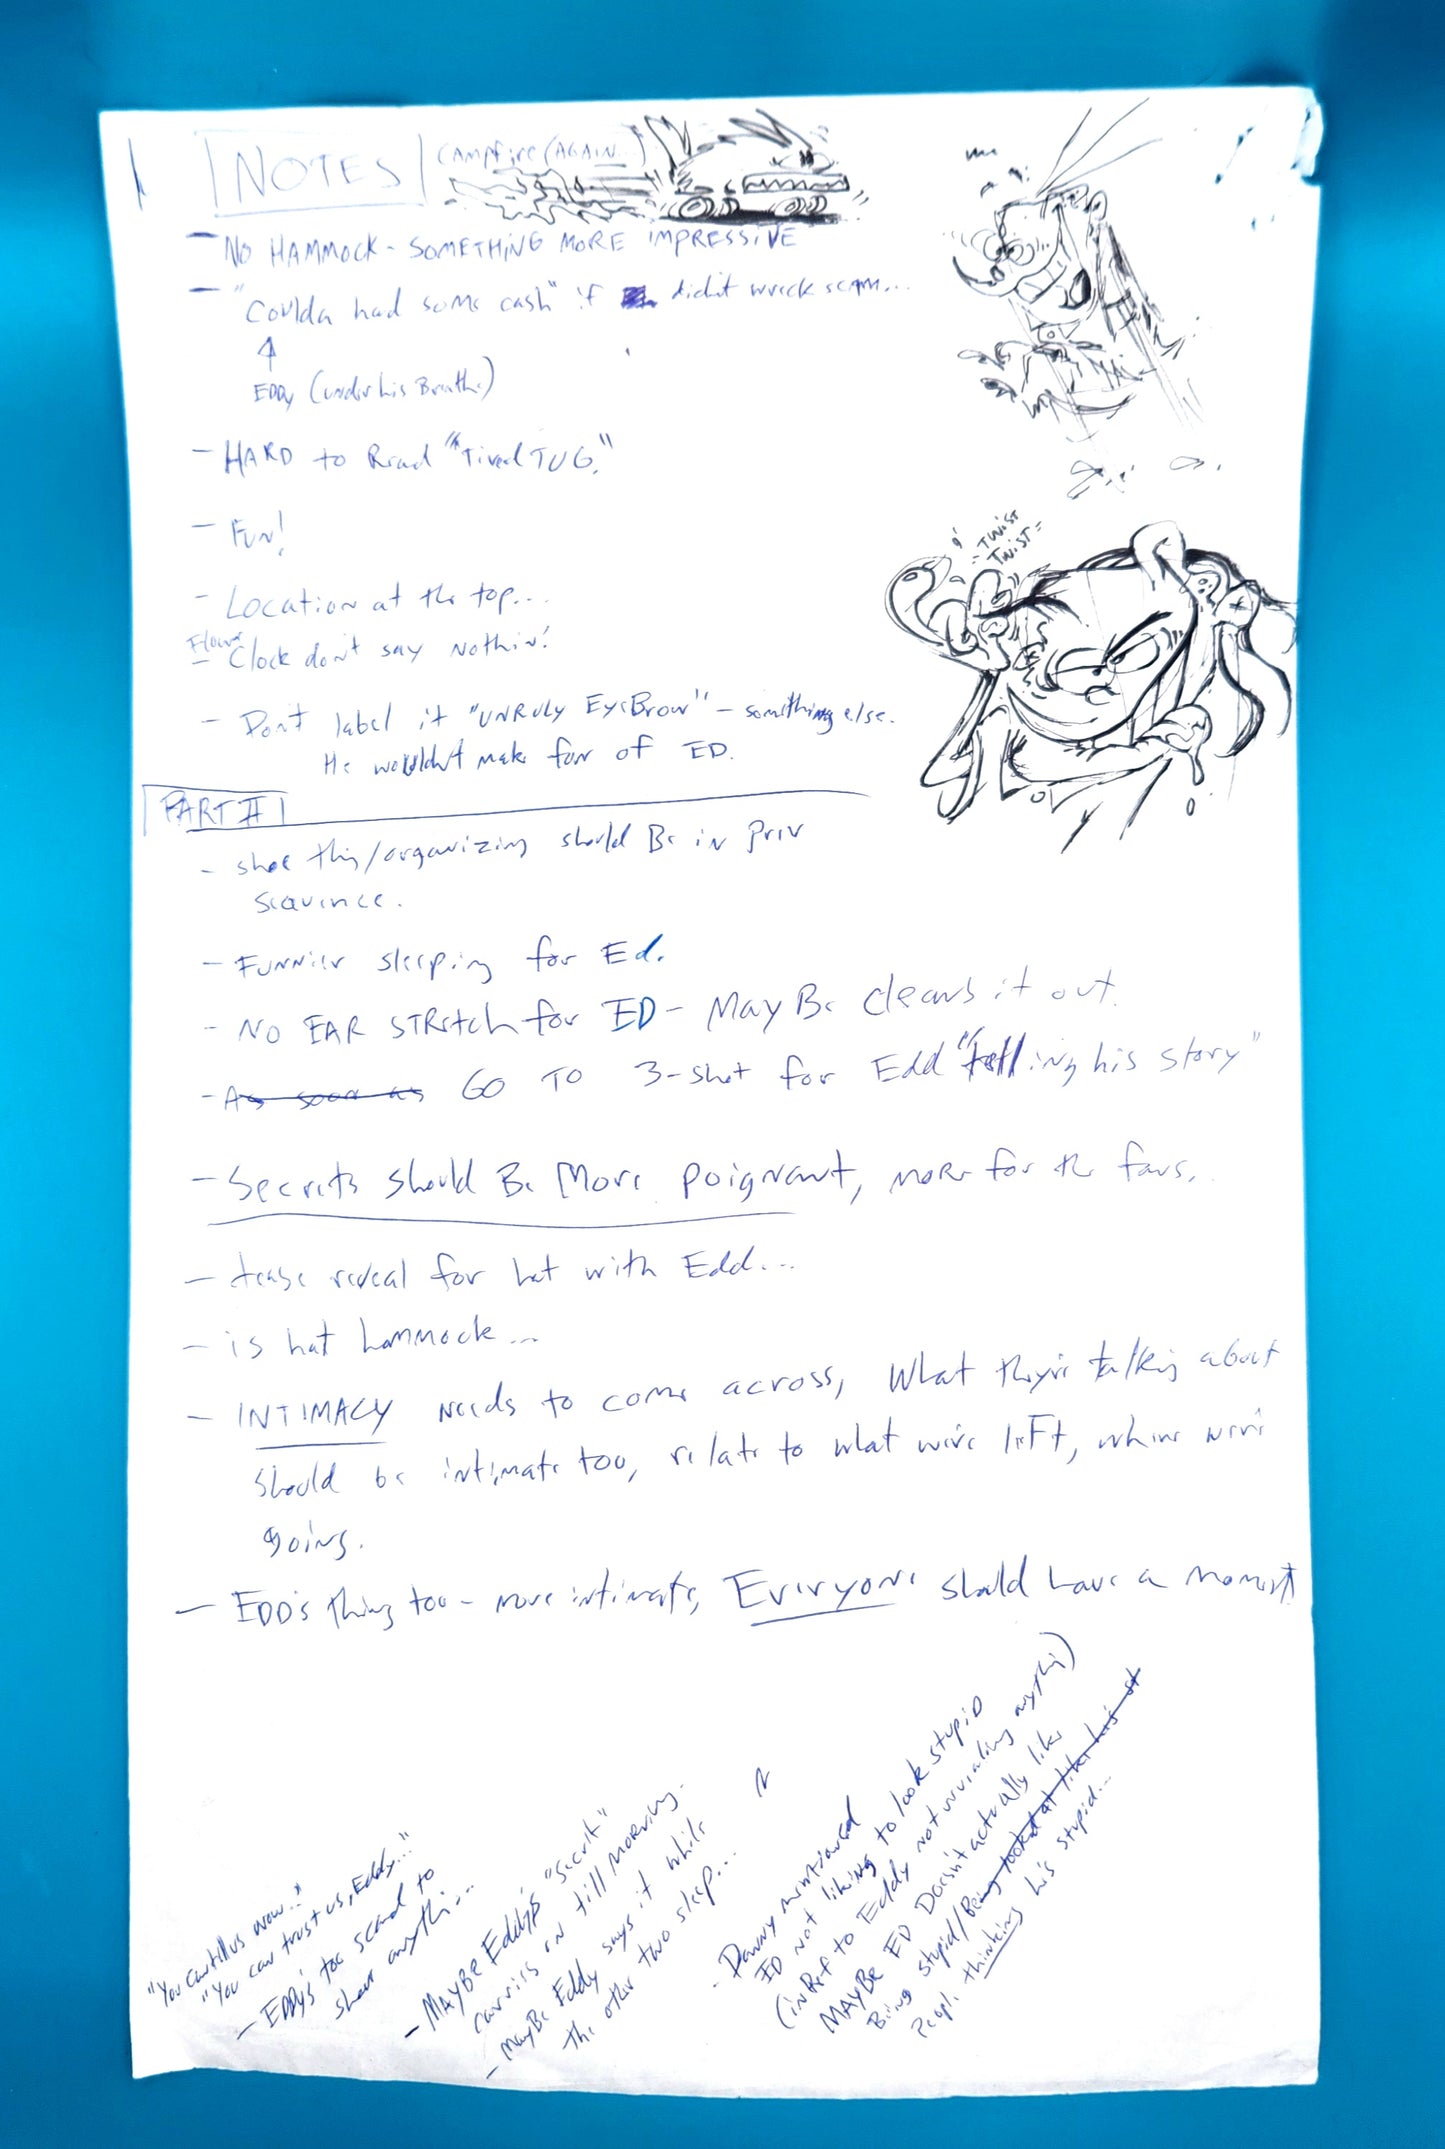 NOTES
CAMPfire (AGAIN...)
- NO HAMMOCK - SOMETHING MORE IMPRESSIVE
- "Coulda had some cash" if didn't wreck scam...
EDDy (under his Breath)
- HARD to Read "Tired TUG."
- FUN!
- Location at the top...
- Flower Clock don't say nothin!
- Don't label it "UNRULY EyeBrow" - something else.
He wouldn't make fun of ED.
TWIST
TWIST
PART II
- shoe thing/organizing should Be in prev
sequence.
- Funnier sleeping for Ed.
- NO EAR STRetch for ED - MayBe cleans it out.
- As soon as GO TO 3-shot for Edd "telling his story"
- Secrets should Be More poignant, more for the fans.
- tease reveal for hat with Edd...
- is hat hammock...
- INTIMACY needs to come across, What they're talking about
should be intimate too, relate to what we've left, where we're
going.
- EDD's thing too - more intimate, Everyone should have a moment
"You can tell us now.."
"You can trust us, Eddy..."
- EDDy's too scared to
share anything...
- MAYBE Eddy's "secret"
carries on till morning -
- mayBe Eddy says it while
the other two sleep...
- Danny mentioned
ED not liking to look stupid
(in Ref to Eddy not revealing anything)
MAYBE ED Doesn't actually like
Being stupid/Being looked at like he's st
People thinking he's stupid...